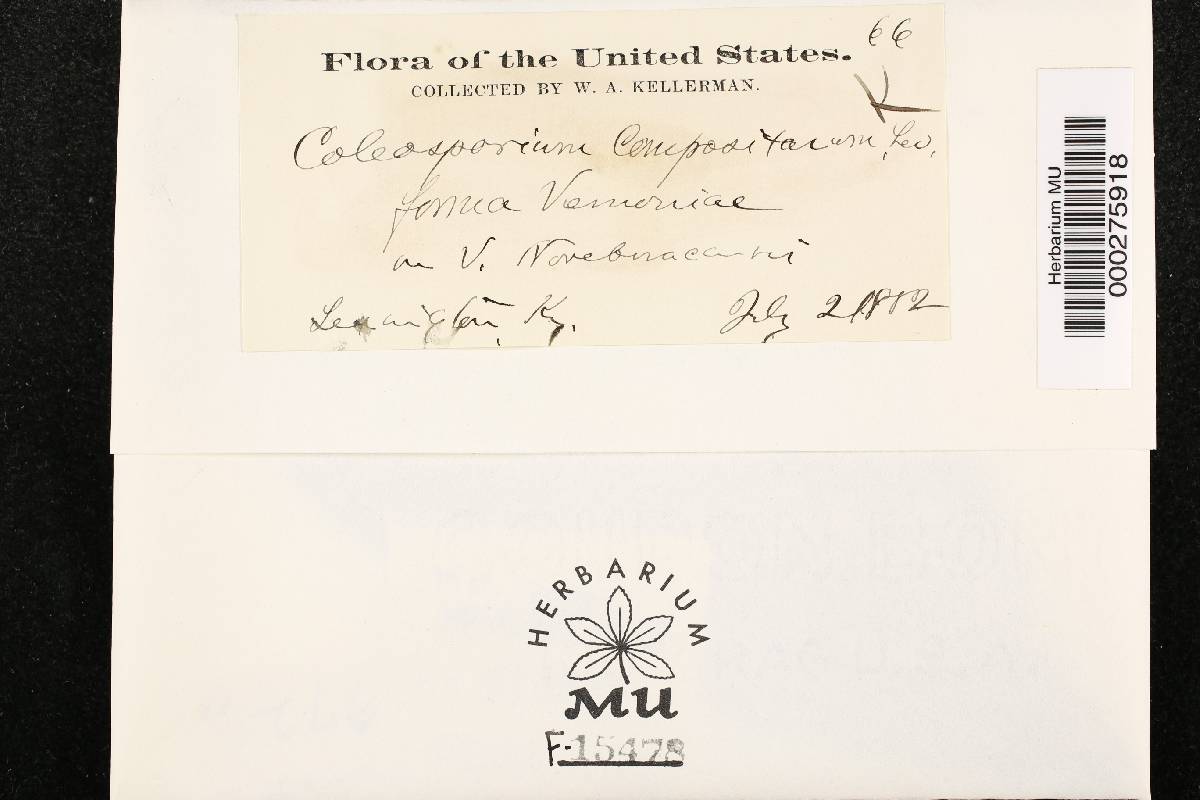 66
Flora of the United States.
COLLECTED BY W. A. KELLERMAN.
K
Coleosporium Compositarum, Lev.
forma Vernoniae
on V. Noveboracensis
Lexington, Ky. July 2 1882
Herbarium MU
000275918
HERBARIUM
MU
F-15478